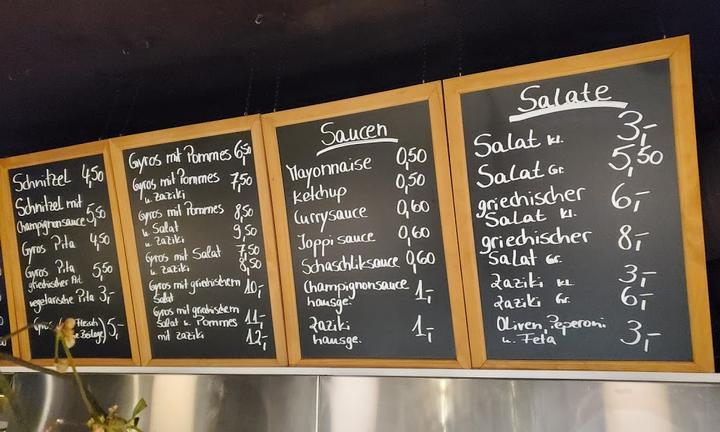 Schnitzel 4,50
Schnitzel mit
Champignonsauce 5,50
Gyros Pita 4,50
Gyros Pita 5,50
griechischer Art
vegetarische Pita 3,-
5,-
Gyros mit Pommes 6,50
Gyros mit Pommes 7,50
u. zaziki
Gyros mit Pommes 8,50
u. Salat
u. zaziki 9,50
Gyros mit Salat 7,50
u. zaziki 8,50
Gyros mit griechischem 10,-
Salat
Gyros mit griechischem
Salat u. Pommes 11,-
mit zaziki 12,-
Saucen
Mayonnaise 0,50
Ketchup 0,50
Currysauce 0,60
Joppisauce 0,60
Schaschliksauce 0,60
Champignonsauce
hausge. 1,-
zaziki
hausge. 1,-
Salate
Salat kl. 3,-
Salat Gr. 5,50
griechischer
Salat kl. 6,-
griechischer
Salat Gr. 8,-
zaziki kl. 3,-
zaziki Gr. 6,-
Oliven, Peperoni
u. Feta 3,-